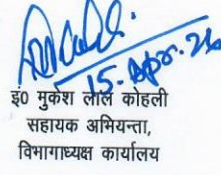 15. Apr. 24
इं0 मुकेश लाल कोहली
सहायक अभियन्ता,
विभागाध्यक्ष कार्यालय